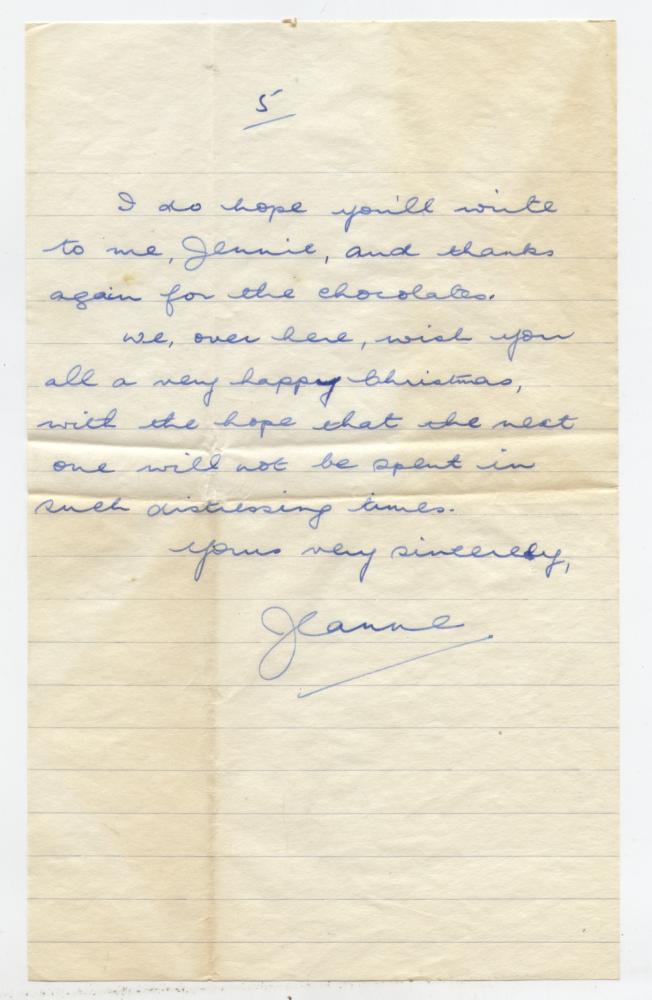 5
I do hope you'll write
to me, Jennie, and thanks
again for the chocolates.
We, over here, wish you
all a very happy Christmas,
with the hope that the next
one will not be spent in
such distressing times.
Yours very sincerely,
Jeanne